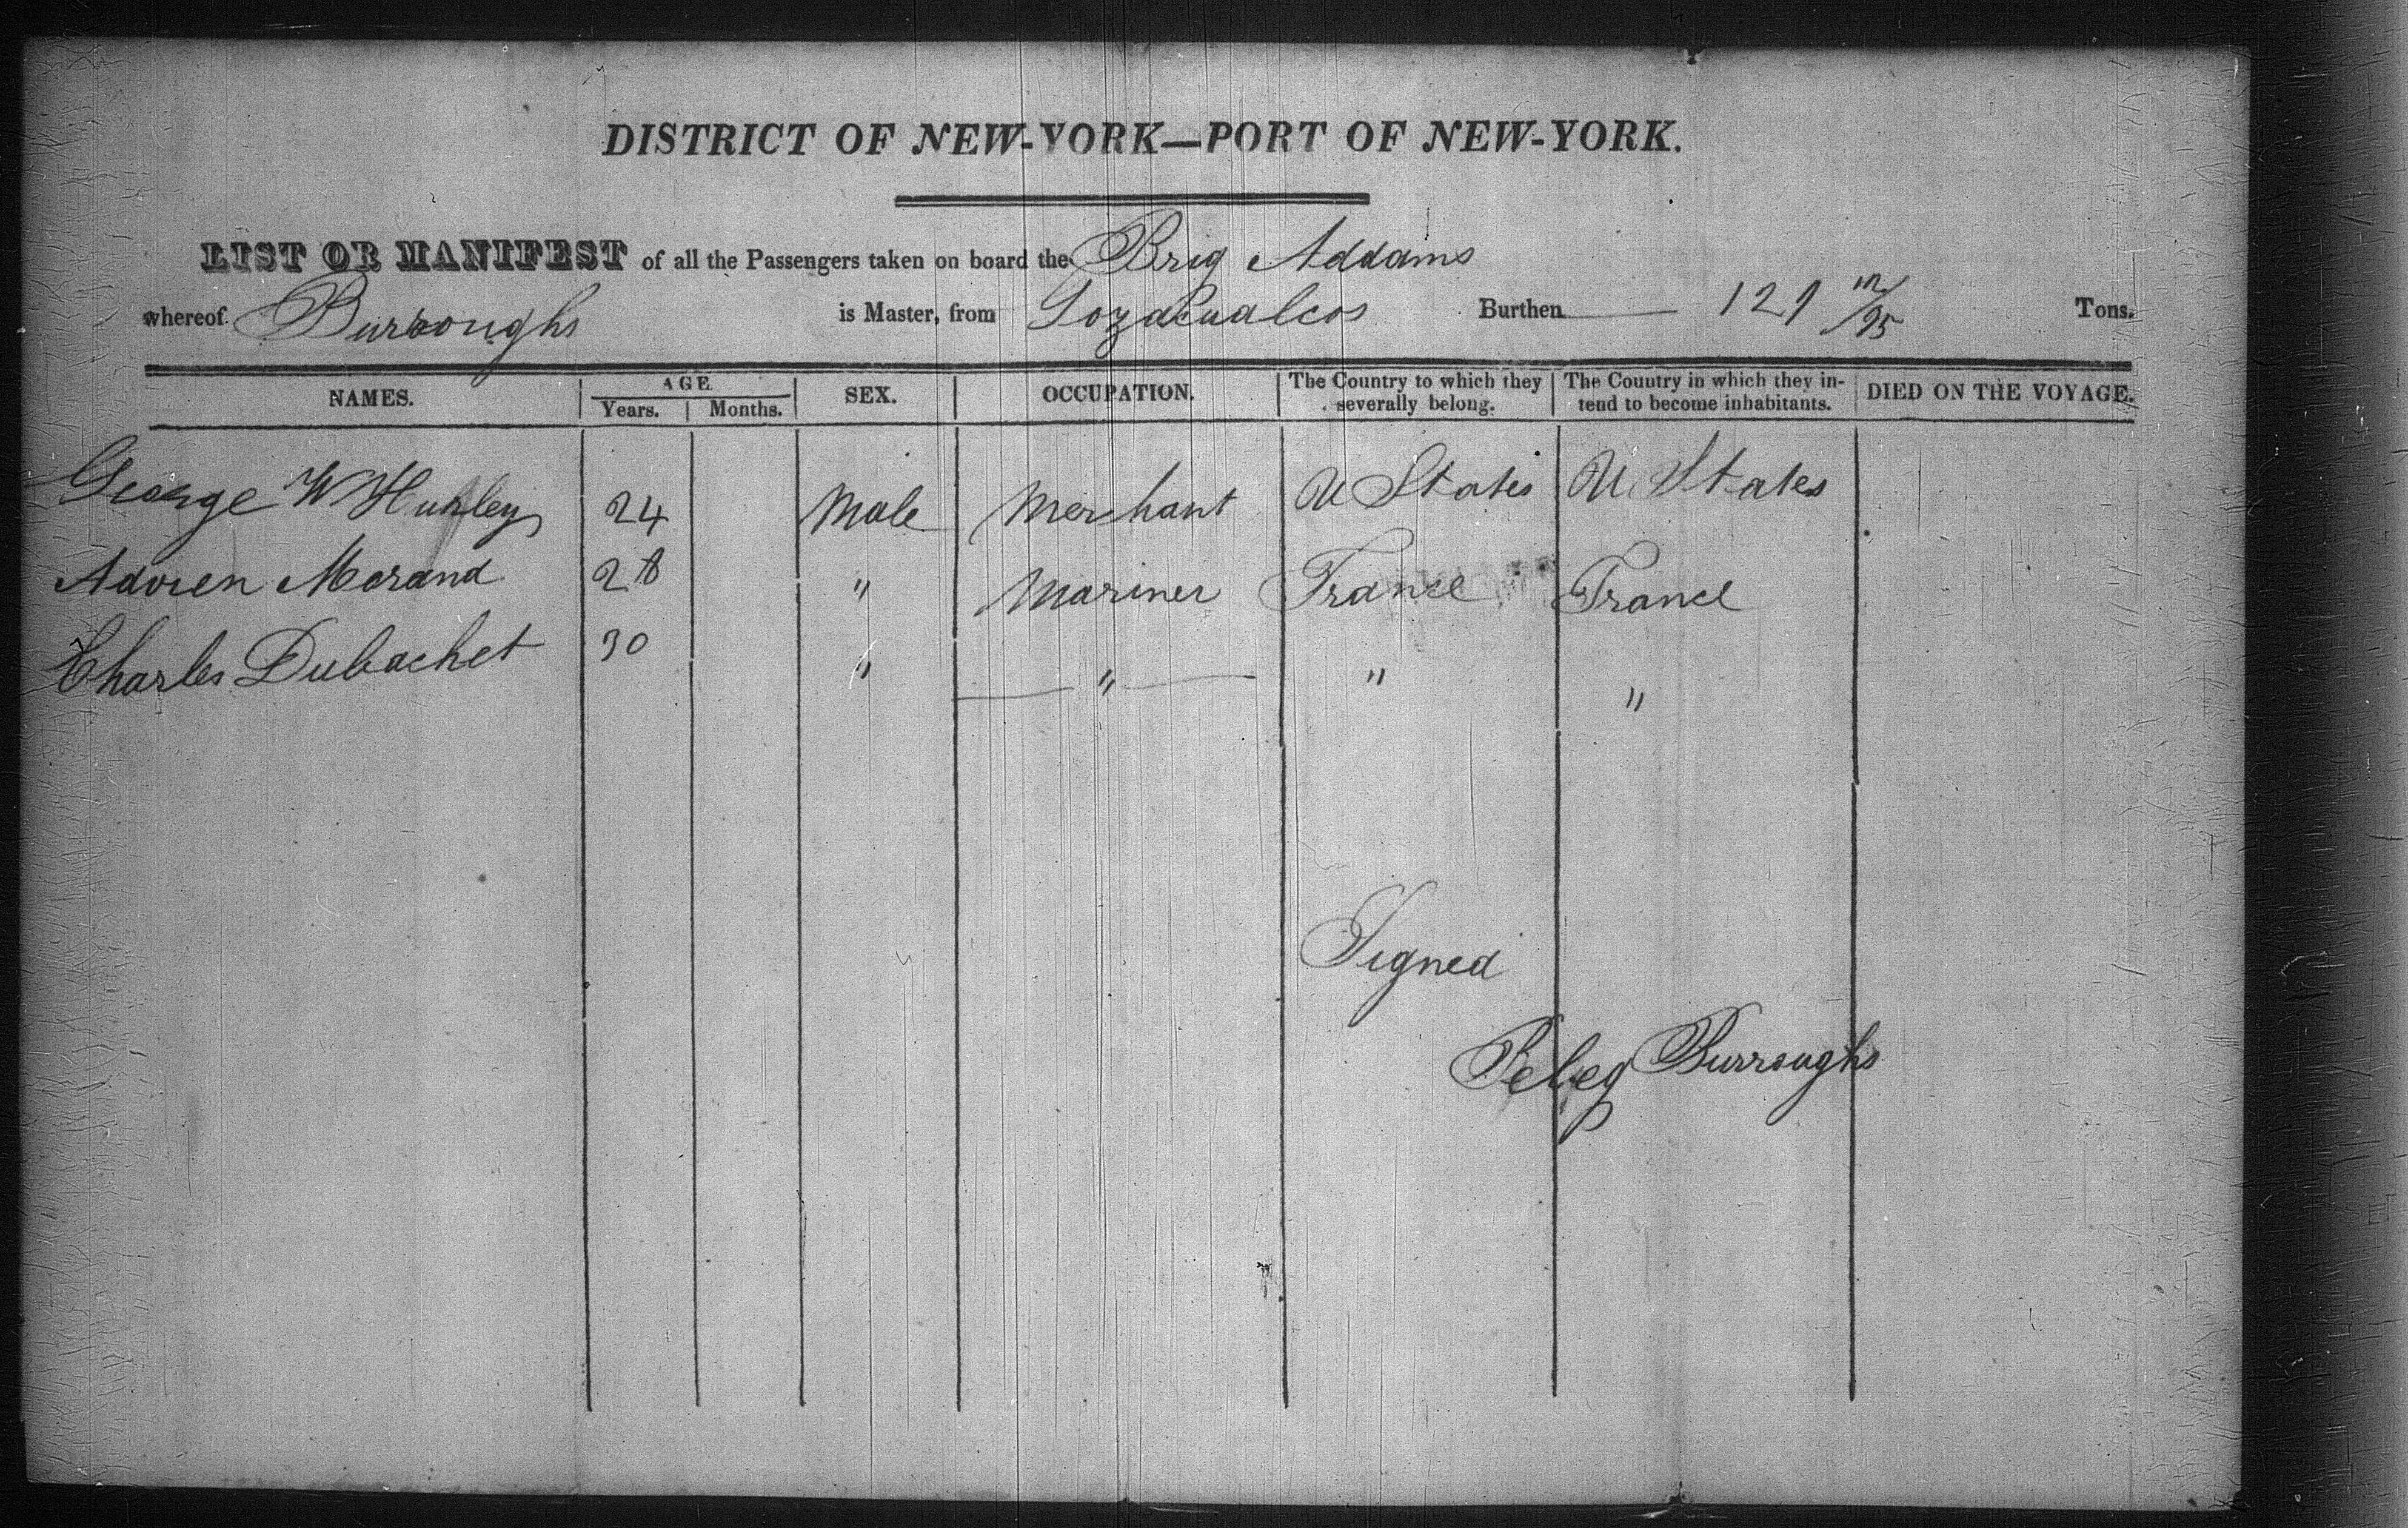 DISTRICT OF NEW-YORK—PORT OF NEW-YORK.
LIST OR MANIFEST of all the Passengers taken on board the Brig Addams
whereof Burroughs is Master, from Gozacualcos Burthen 121 12/95 Tons.
NAMES. AGE. SEX. OCCUPATION. The Country to which they severally belong. The Country in which they in- DIED ON THE VOYAGE.
Years. Months. tend to become inhabitants.
George W Hunley 24 Male Merchant U States U States
Adorien Morand 28 " Mariner France France
Charles Dubachet 30 " " " "
Signed
Peleg Burroughs